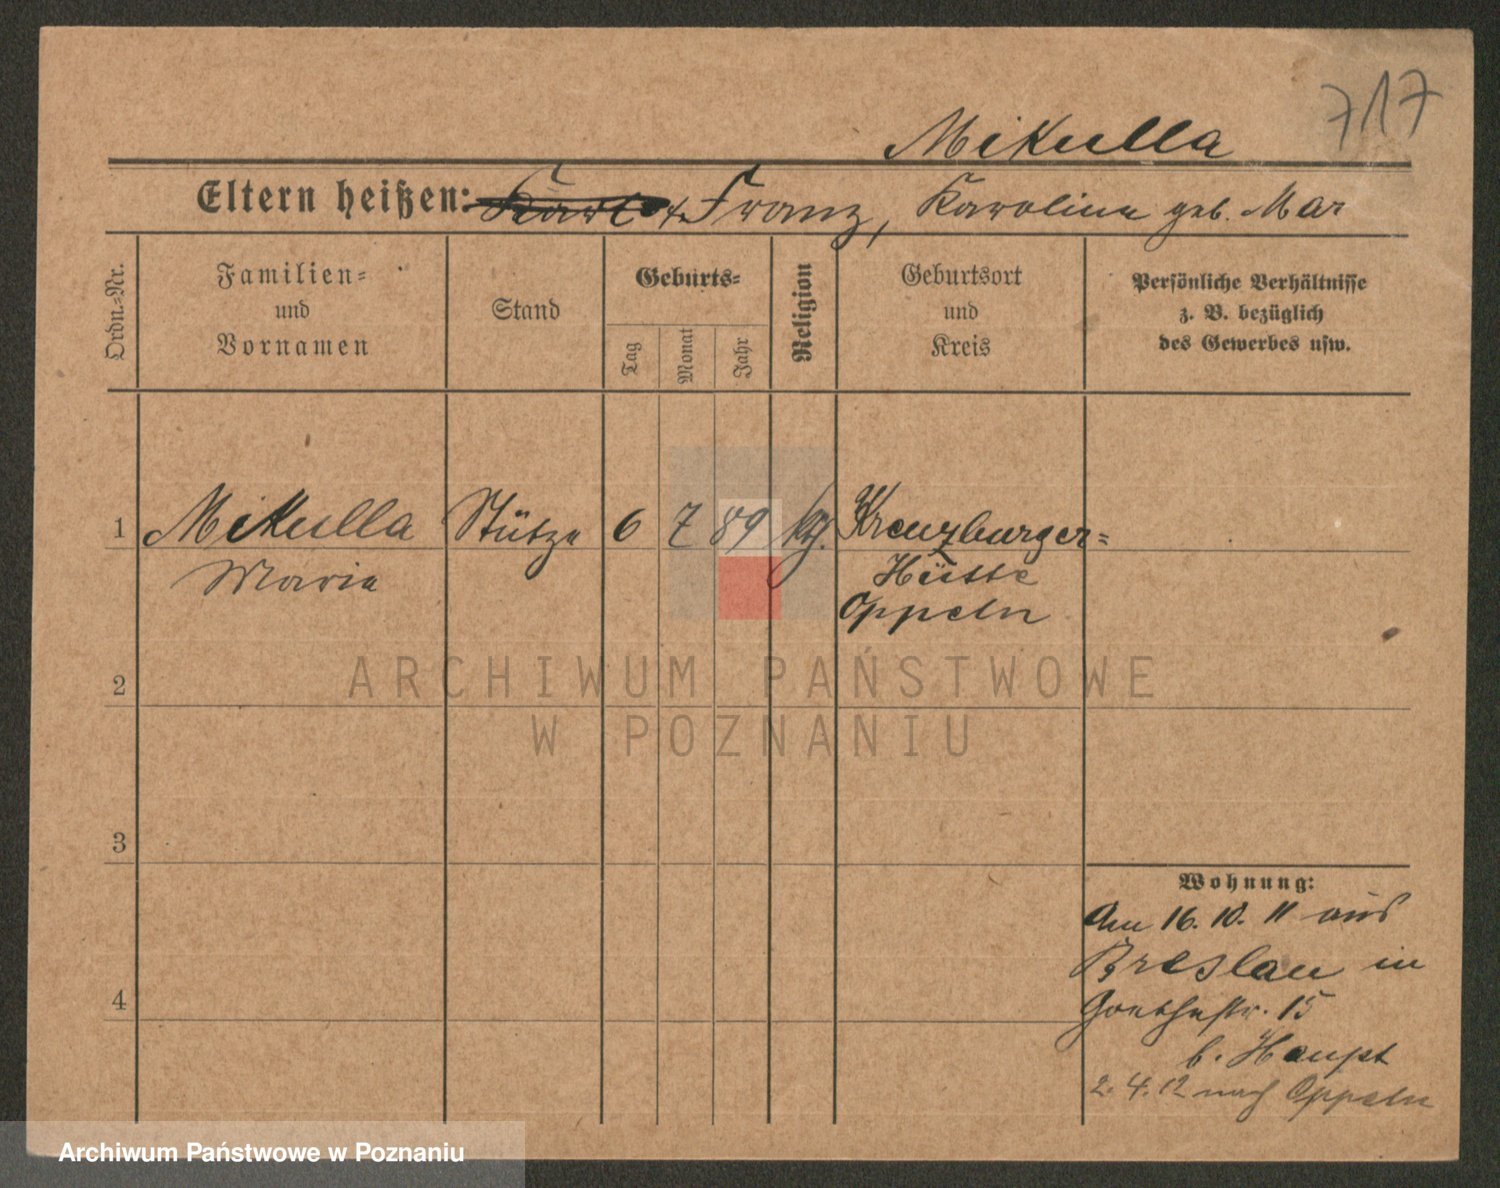 717
Mikulla
Eltern heißen: Karl Franz, Karoline geb. Mar
Ordn.-Nr.
Familien-
und
Vornamen
Stand
Geburts-
Tag
Monat
Jahr
Religion
Geburtsort
und
Kreis
Persönliche Verhältnisse
z. B. bezüglich
des Gewerbes usw.
1 Mikulla Stütze 6 7 89 kg. Kreuzburger-
Marie Hütte
Oppeln
2
ARCHIWUM PAŃSTWOWE
W POZNANIU
3
Wohnung:
Am 16. 10. 11 aus
Breslau in
4
Goethestr. 15
b. Haupt
2. 4. 12 nach Oppeln
Archiwum Państwowe w Poznaniu